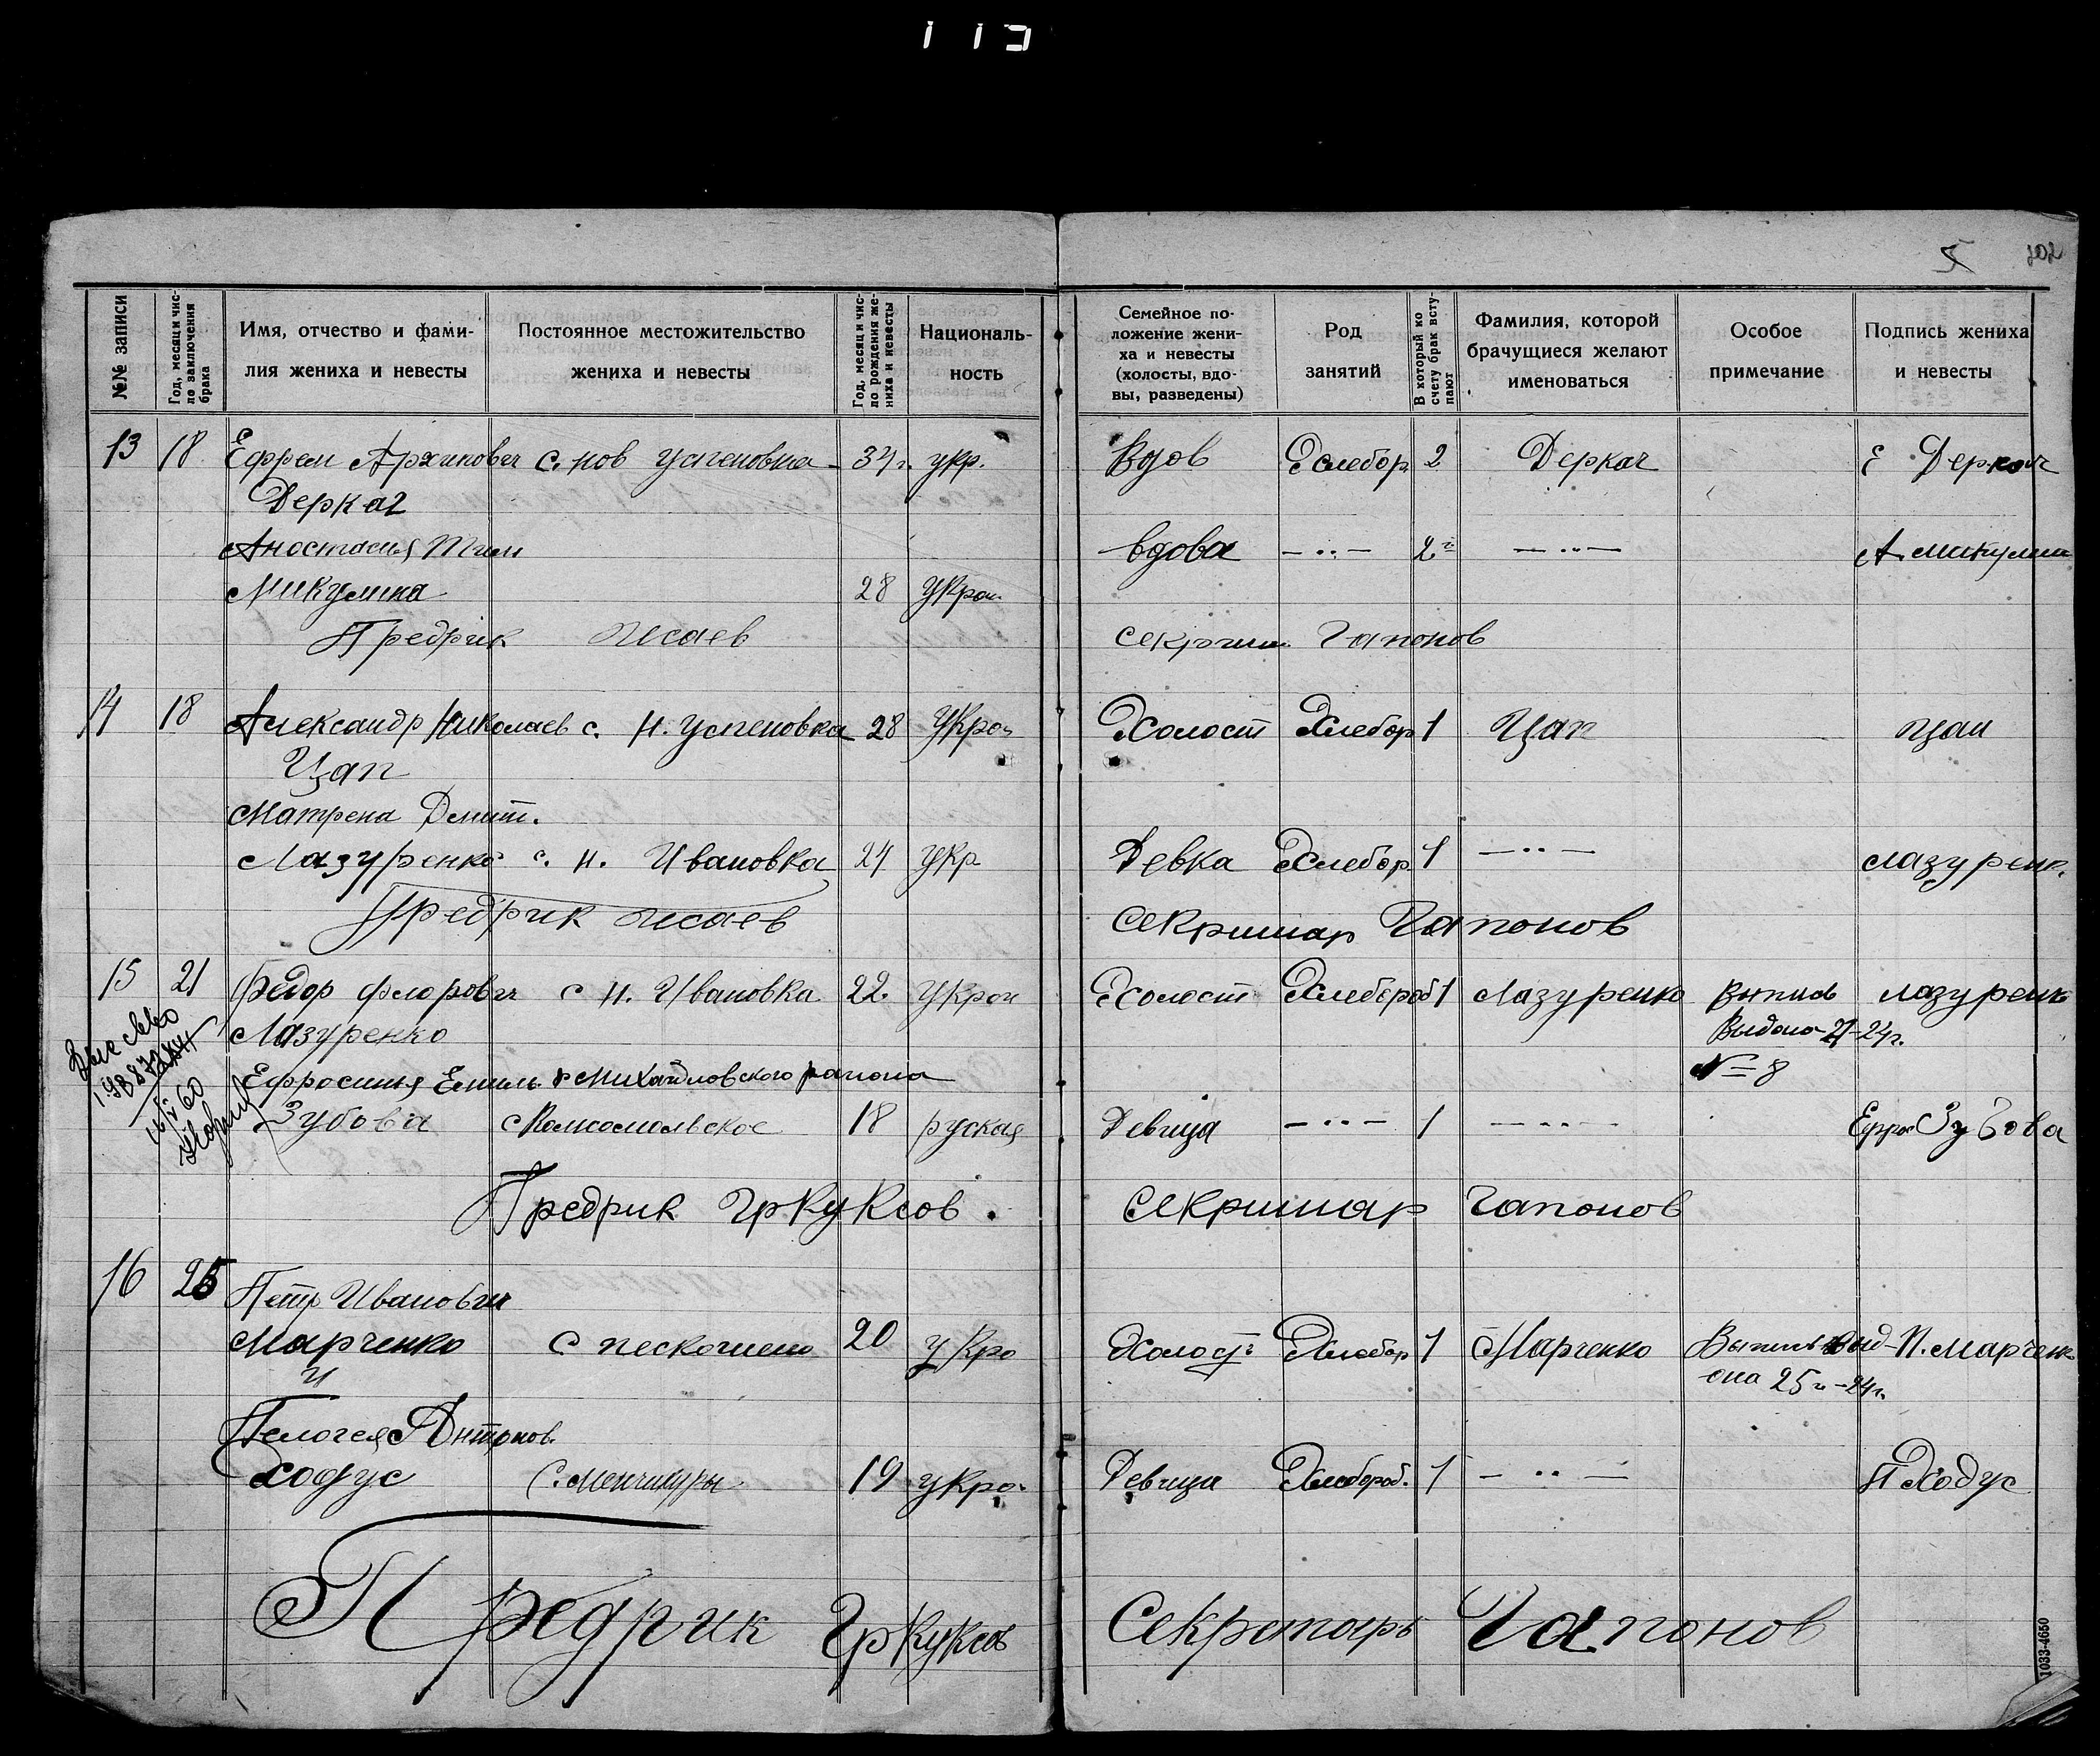 5 102
№№ записи
Год, месяц и число заключения брака
Имя, отчество и фами-
лия жениха и невесты
Постоянное местожительство
жениха и невесты
Год, месяц и чис-
ло рождения же-
ниха и невесты
Националь-
ность
Семейное по-
ложение жени-
ха и невесты
(холосты, вдо-
вы, разведены)
Род
занятий
В который ко
счету брак всту-
пают
Фамилия, которой
брачущиеся желают
именоваться
Особое
примечание
Подпись жениха
и невесты
13 18 Ефрем Архипович с. нов успеновка 34 г. укр. Вдов Хлебор 2 Деркач Е Деркач
Деркач
Анастасия Тим вдова — ·· — 2 — ·· — А Микулин
Микулина 28 Украи
Предрик Исаев Гапонов
14 18 Александр Николаев с. Н. Успеновка 28 Укра Холост Хлебор 1 Цап Цап
Цап
Матрена Дмит.
Лазуренко с. Н. Ивановка 24 укр Девка Хлебор 1 — ·· — Лазуренк.
Предрик Исаев Секритар Гапонов
15 21 Федор Флорович с Н. Ивановка 22. Украи Холост Хлебороб 1 Лазуренко Выпись Лазуренк
Лазуренко Выдана 21-24 г.
Ефросинья Емиль. Михайловского района № 8
Зубова с Комсомольское 18 руская Девица — ·· — 1 — ·· — Ефро Зубова
Предрик Гр Куксов. Секритар Гапонов
16 25 Петр Иванович
Марченко с пескошино 20 укра Холост Хлебор 1 Марченко Выпись выд- П. Марченк
и ена 25 г. -24 г.
Пелогея Антонов.
Ходус с. Менчикуры 19 укра. Девица Хлебороб. 1 — ·· — П Ходус
Предрик Гр Куксов Секретарь Гапонов
1033-4650